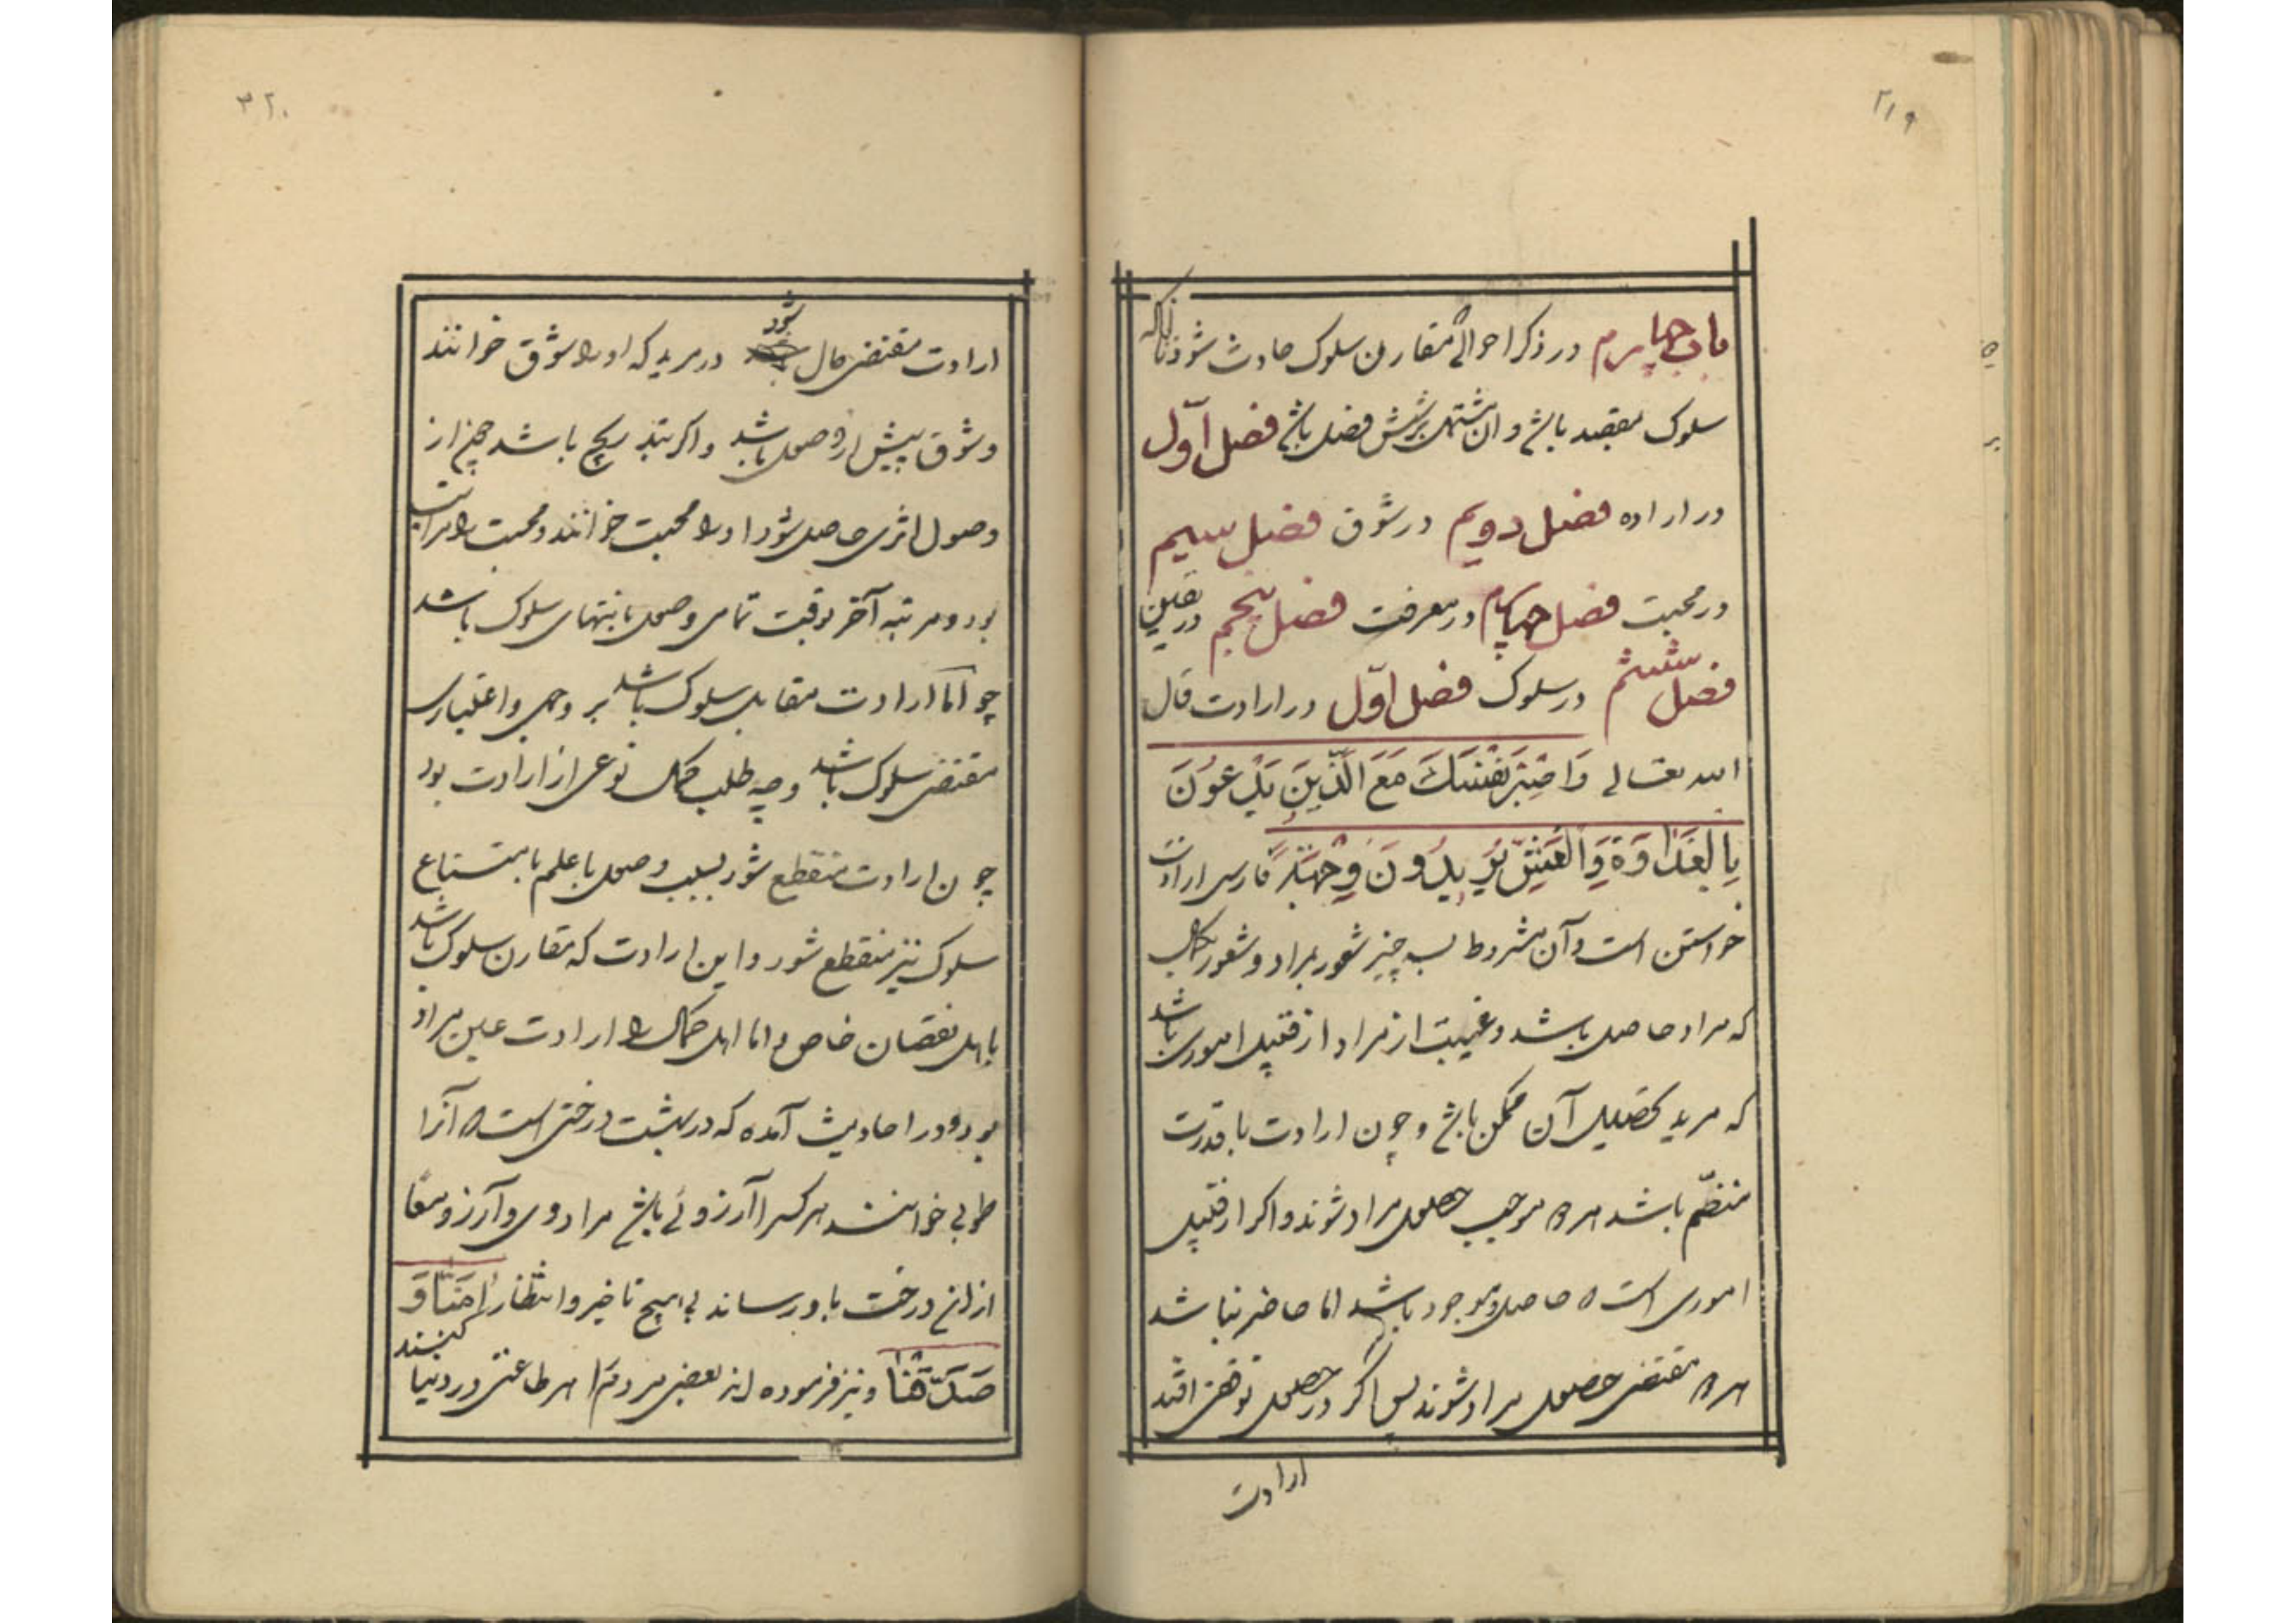 ۳۱۹
باب چهارم در ذکر احوالی مقارن سلوک حادث شود تا آنکه
سلوک بمقصد باشد و آن مشتمل بر شش فصل باشد فصل اوّل
در اراده فصل دویم در شوق فصل سیم
در محبت فصل چهارم در معرفت فصل پنجم در یقین
فصل ششم در سلوک فصل اوّل در ارادت قال
الله تعالی وَاصْبِرْ نَفْسَكَ مَعَ الَّذِينَ يَدْعُونَ
بِالْغَدَاوةِ وَالْعَشِيِّ يُرِيدُونَ وَجْهَهُ فارسی ارادت
خواستن است و آن مشروط بسه چیز شعور بمراد و شعور بکمال
که مراد حاصل باشد و غیبت از مراد از قبیل اموری باشد
که مرید تحصیل آن ممکن باشد و چون ارادت با قدرت
منضّم باشد هر دو موجب حصول مراد شوند و اگر از قبیل
اموری است که حاصل و موجود باشد اما حاضر نباشد
هر دو مقتضی حصول مراد شوند پس اگر در حصول توقفی افتد
ارادت
۳۲۰
ارادت مقتضی حال شود در مرید که او را شوق خوانند
و شوق پیش از وصول باشد و اگر بتدریج باشد چون از
وصول اثری حاصل شود او را محبت خوانند و محبت را مراتب
بود و مرتبه آخر بوقت تمامی وصول بانتهای سلوک باشد
چو اما ارادت مقابل سلوک باشد بر وجهی و اعتباری
مقتضی سلوک باشد و چه طلب کمال نوعی از ارادت بود
چون ارادت منقطع شود بسبب وصول یا علم بامتناع
سلوک نیز منقطع شود و این ارادت که مقارن سلوک باشد
باهل نقصان خاص و اما اهل کمال را ارادت عین مراد
بود و در احادیث آمده که در بهشت درختی است که آنرا
طوبی خوانند هر کس را آرزوئی باشد مراد وی و آرزو معا
از آن درخت باو رساند بی هیچ تاخیر و انتظار اٰمَنَّا وَ
صَدَّقْنَا و نیز فرموده اند بعضی مردم را هر طاعتی در دنیا کنند